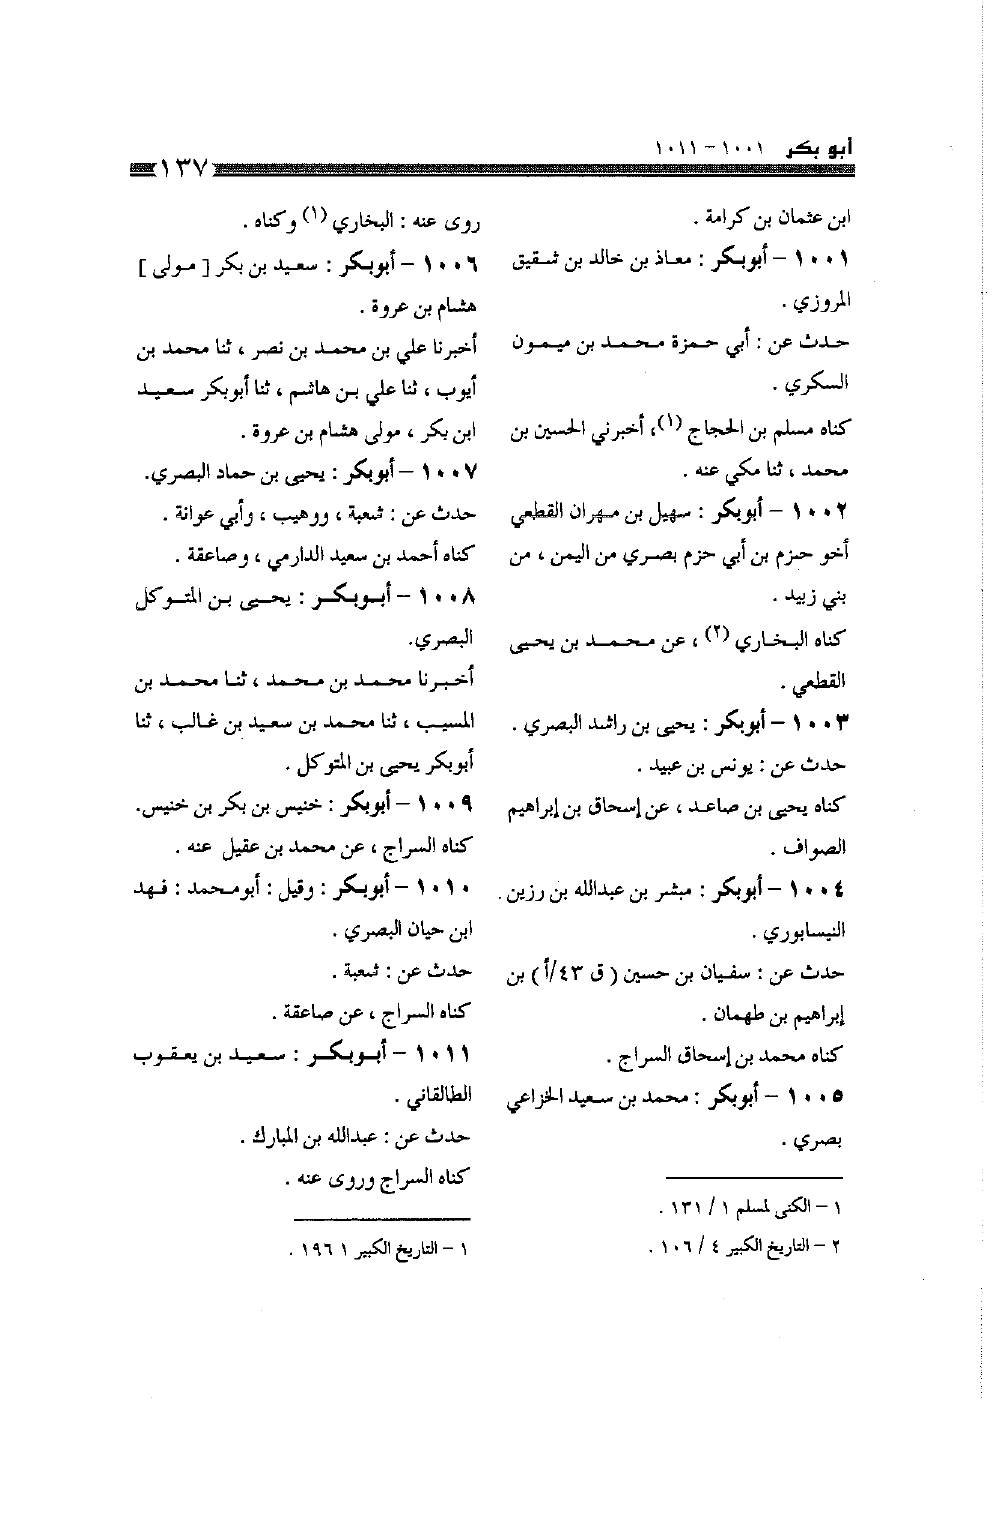 أبو بكر ١٠٠١ - ١٠١١
١٣٧
ابن عثمان بن كرامة .
١٠٠١ - أبوبكر : معاذ بن خالد بن شقيق
المروزي .
حدث عن : أبي حمزة محمد بن ميمون
السكري .
كناه مسلم بن الحجاج (١)، أخبرني الحسين بن
محمد ، ثنا مكي عنه .
١٠٠٢ - أبوبكر : سهيل بن مهران القطعي
أخو حزم بن أبي حزم بصري من اليمن ، من
بني زبيد .
كناه البخاري (٢) ، عن محمد بن يحيى
القطعي .
١٠٠٣ - أبوبكر : يحيى بن راشد البصري .
حدث عن : يونس بن عبيد .
كناه يحيى بن صاعد ، عن إسحاق بن إبراهيم
الصواف .
١٠٠٤ - أبوبكر : مبشر بن عبدالله بن رزين .
النيسابوري .
حدث عن : سفيان بن حسين ( ق ٤٣/أ ) بن
إبراهيم بن طهمان .
كناه محمد بن إسحاق السراج .
١٠٠٥ - أبوبكر : محمد بن سعيد الخزاعي
بصري .
١ - الكنى لمسلم ١ / ١٣١ .
٢ - التاريخ الكبير ٤ / ١٠٦ .
روى عنه : البخاري (١) وكناه .
١٠٠٦ - أبوبكر : سعيد بن بكر [ مولى ]
هشام بن عروة .
أخبرنا علي بن محمد بن نصر ، ثنا محمد بن
أيوب ، ثنا علي بن هاشم ، ثنا أبوبكر سعيد
ابن بكر ، مولى هشام بن عروة .
١٠٠٧ - أبوبكر : يحيى بن حماد البصري.
حدث عن : شعبة ، ووهيب ، وأبي عوانة .
كناه أحمد بن سعيد الدارمي ، وصاعقة .
١٠٠٨ - أبوبكر : يحيى بن المتوكل
البصري.
أخبرنا محمد بن محمد ، ثنا محمد بن
المسيب ، ثنا محمد بن سعيد بن غالب ، ثنا
أبوبكر يحيى بن المتوكل .
١٠٠٩ - أبوبكر : خنيس بن بكر بن خنيس.
كناه السراج ، عن محمد بن عقيل عنه .
١٠١٠ - أبوبكر : وقيل : أبومحمد : فهد
ابن حيان البصري .
حدث عن : شعبة .
كناه السراج ، عن صاعقة .
١٠١١ - أبوبكر : سعيد بن يعقوب
الطالقاني .
حدث عن : عبدالله بن المبارك .
كناه السراج وروى عنه .
١ - التاريخ الكبير ١ ١٩٦ .